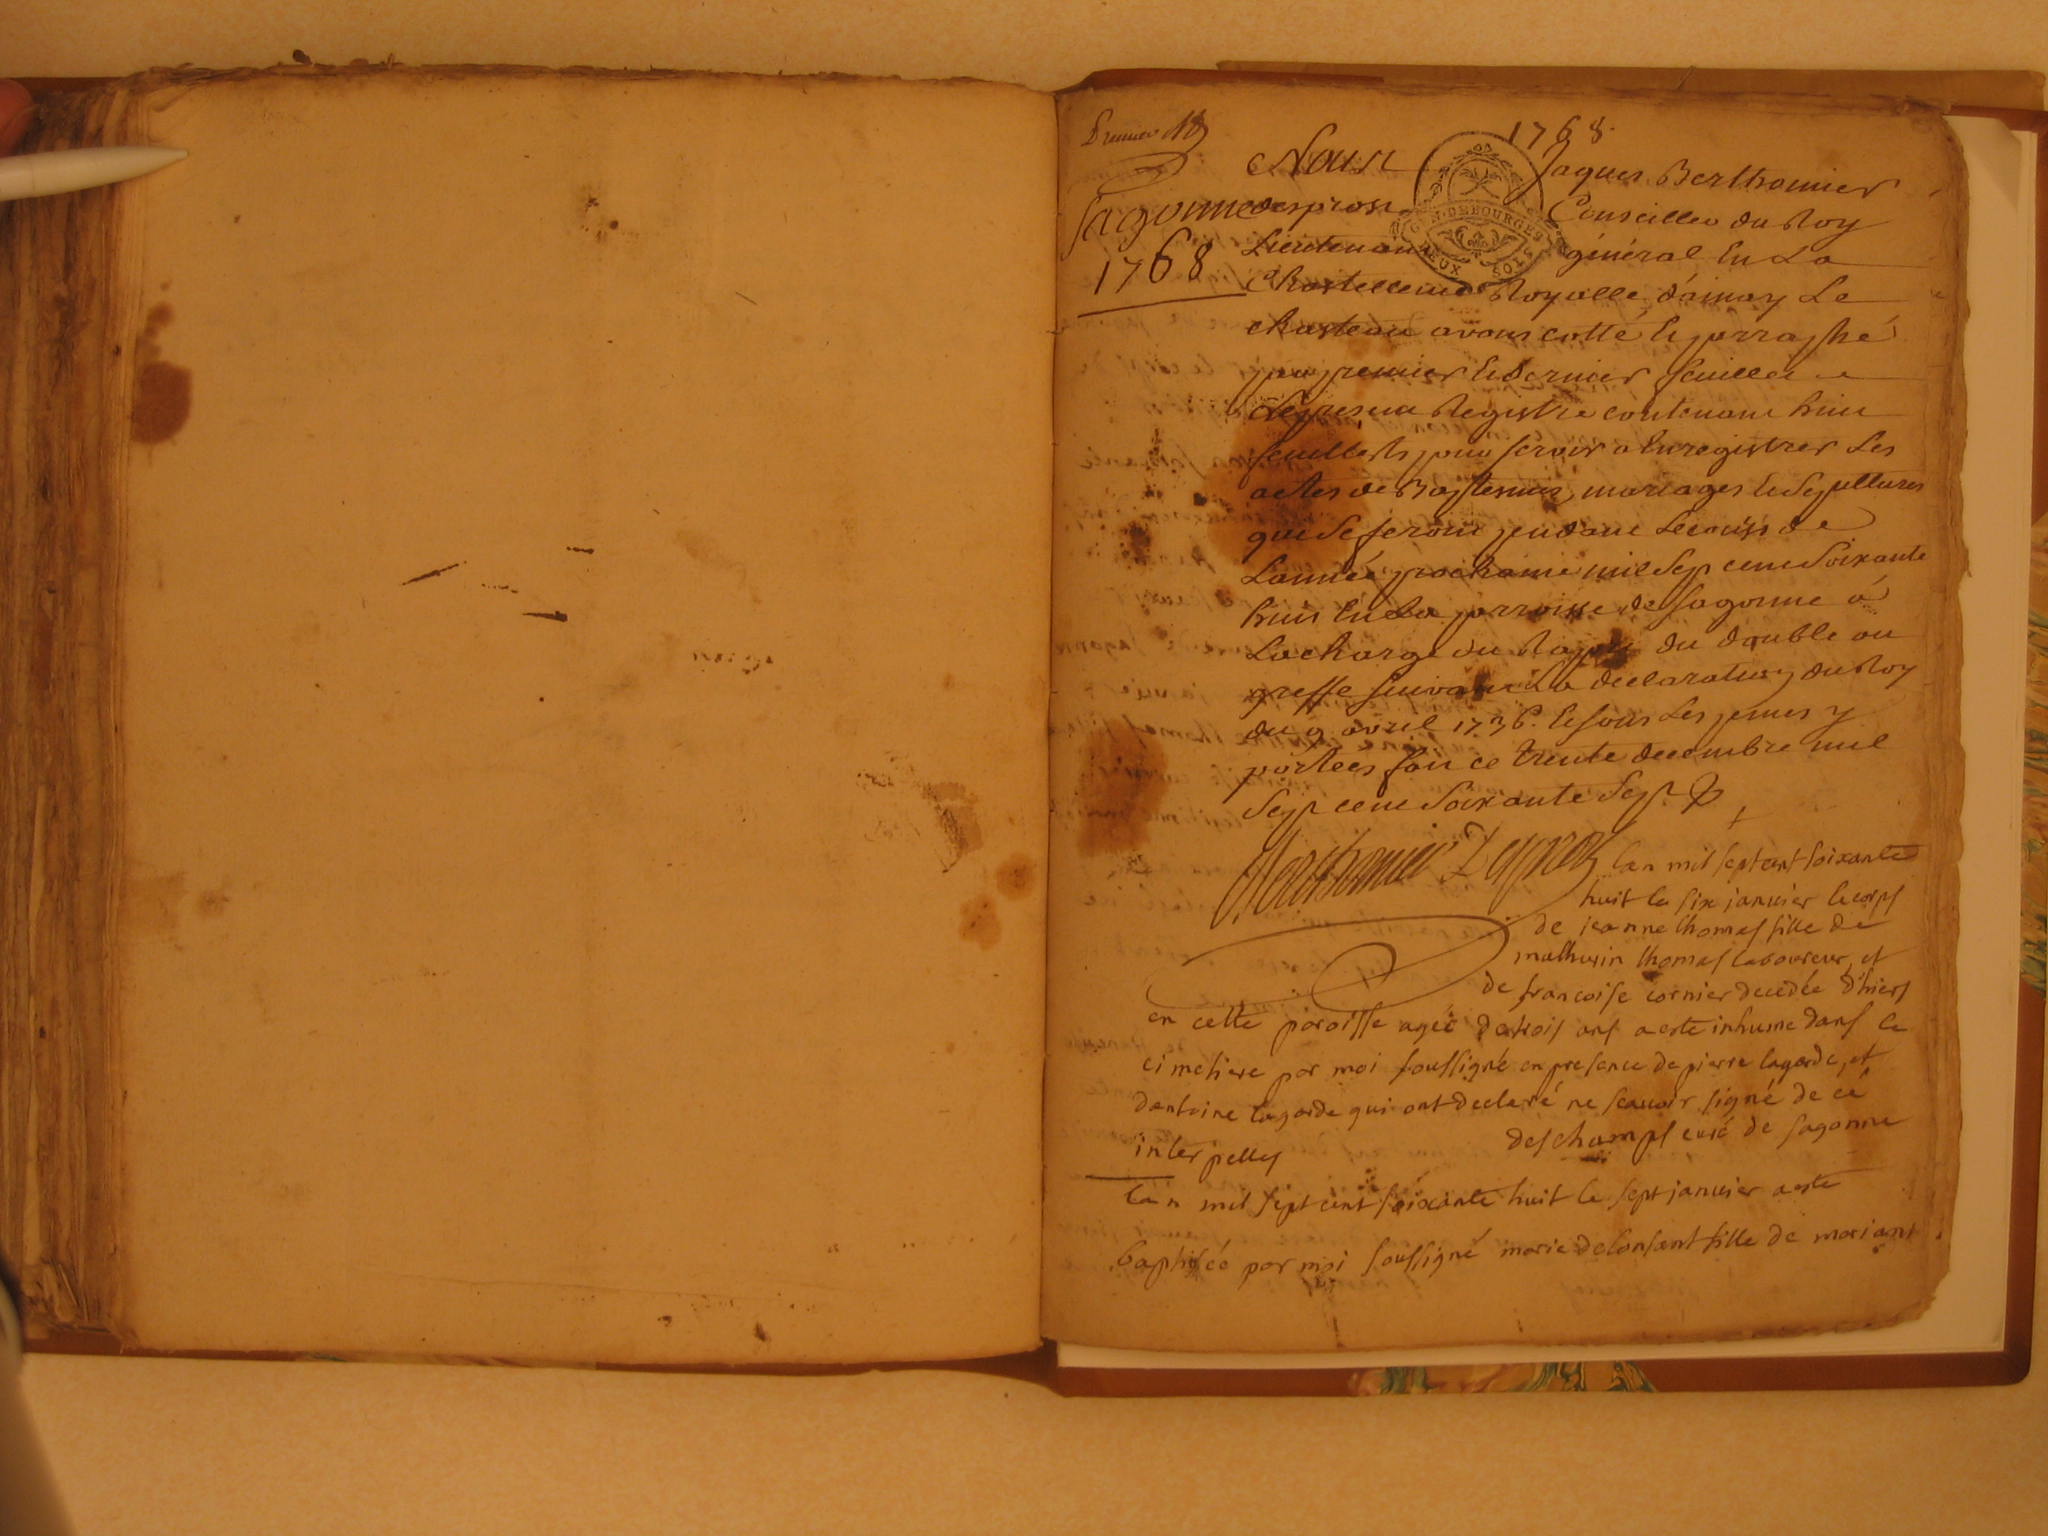 Premier
1768
Sagonne
1768
Nous Jaques Berthomier
desprost Conseiller du Roy
Lieutenant général En La
Chastellenie Royalle d'ainay Le
chasteau avons cotté Et parraphé
par premier Et dernier feuillet
Le present Registre contenant huit
feuillets pour servir a Enregistrer Les
actes de Baptesmes, mariages Et Sepultures
qui Se feront pendant Le cours de
L'année prochaine mil Sept cent Soixante
huit En La parroisse de Sagonne à
La charge du Raport du double au
greffe suivant La declaration du Roy
du 9 avril 1736. Et sous Les peines y
portées fait ce trente decembre mil
Sept cent Soixante Sept
GN. DE BOURGES
DEUX SOLS
Berthomier Desprost
lan mil sept cent soixante
huit le six janvier le corps
de jeanne thomas fille de
mathurin thomas laboureur, et
de francoise cornier decedée d'hiers
en cette paroisse agée de trois ans a este inhume dans le
cimetiere par moi soussigné en presence de pierre lagarde, et
dantoine lagarde qui ont declaré ne scavoir signé de cé
interpellés
deschamps curé de sagonne
Lan mil sept cent soixante huit le sept janvier a este
baptisée par moi soussigné marie delonsant fille de